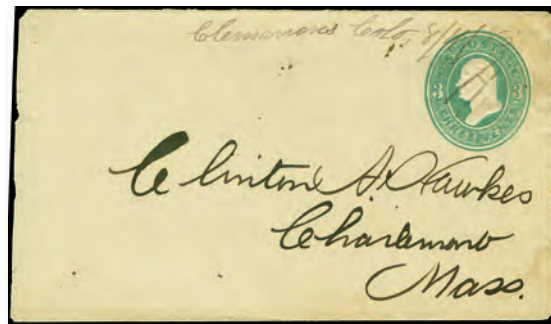 Clemmons Colo, 8/
U.S. POSTAGE
3 3
THREE CENTS
Clinton A. Hawkes
Charlemont
Mass.